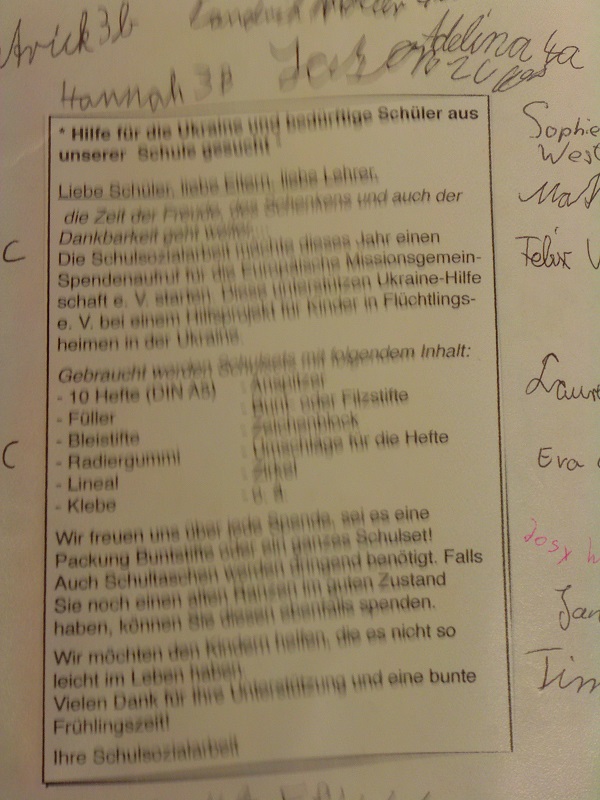 Arick 3b
Adelina 4a
Hannah 3B
2C
Sophie
West
* Hilfe für die Ukraine und bedürftige Schüler aus
unserer Schule gesucht
Liebe Schüler, liebe Eltern, liebe Lehrer,
die Zeit der Freude, des Schenkens und auch der
Dankbarkeit geht weiter.
Felix V
C
Die Schulsozialarbeit möchte dieses Jahr einen
Spendenaufruf für die Europäische Missionsgemein-
schaft e. V. starten. Diese unterstützen Ukraine-Hilfe
e. V. bei einem Hilfsprojekt für Kinder in Flüchtlings-
heimen in der Ukraine.
Gebraucht werden Schulsets mit folgendem Inhalt:
- 10 Hefte (DIN A5) - Anspitzer
- Füller - Bunt- oder Filzstifte
- Bleistifte - Zeichenblock
- Radiergummi - Umschläge für die Hefte
- Lineal - Zirkel
- Klebe - u. a.
C
Eva
Wir freuen uns über jede Spende, sei es eine
Packung Buntstifte oder ein ganzes Schulset!
Auch Schultaschen werden dringend benötigt. Falls
Sie noch einen alten Ranzen im guten Zustand
haben, können Sie diesen ebenfalls spenden.
Wir möchten den Kindern helfen, die es nicht so
leicht im Leben haben.
Vielen Dank für Ihre Unterstützung und eine bunte
Frühlingszeit!
Ihre Schulsozialarbeit
Jan
Tim